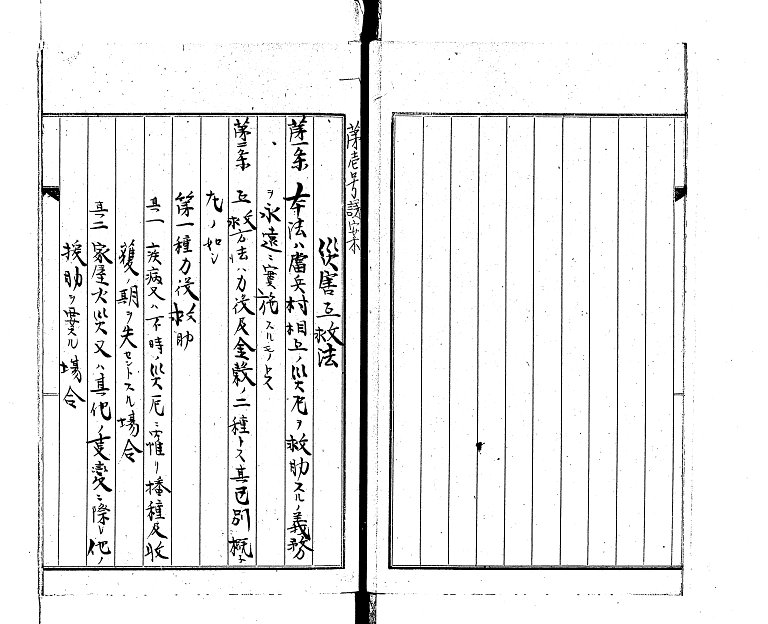 第壱号議案
災害互救法
第一条 本法ハ当兵村相互ノ災厄ヲ救助スルノ義務
ヲ永遠ニ実施スルモノトス
第二条 互救方法ハ力役及金穀ノ二種トス其区別概子
左ノ如シ
第一種力役救助
其一 疾病又ハ不時ノ災厄ニ罹リ播種及収
獲ノ期ヲ失セントスル場合
其二 家屋火災又ハ其他ノ事変ニ際シ他ノ
援助ヲ要スル場合